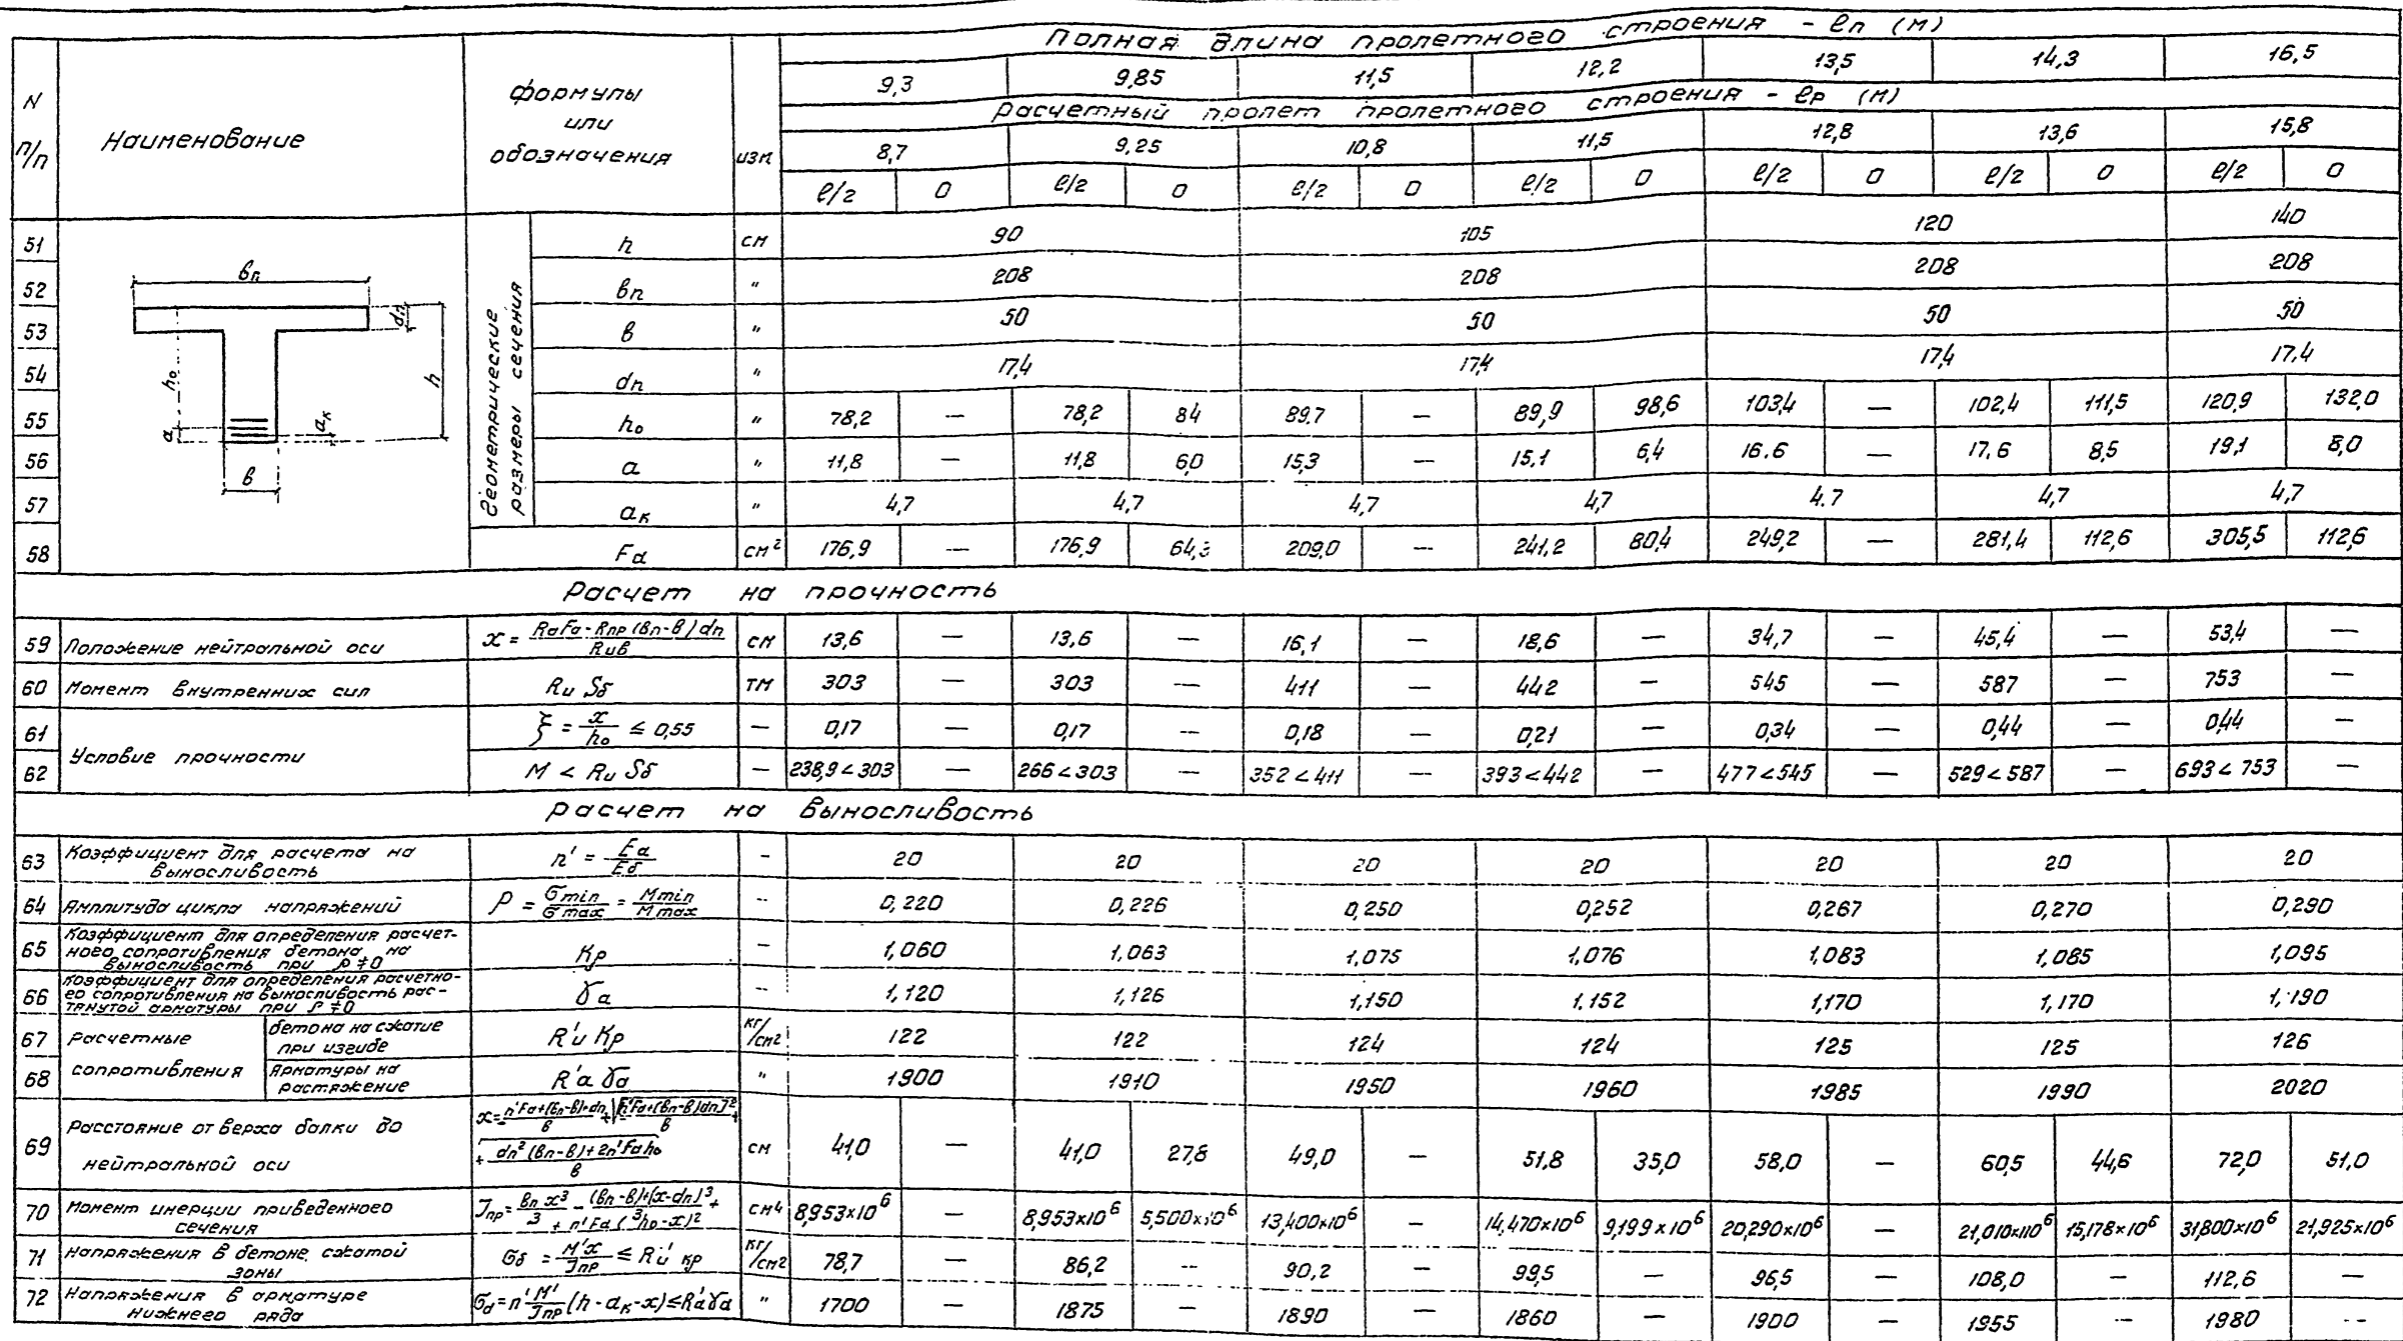 Полная длина пролетного строения - ℓп (м)
N п/п | Наименование | формулы или обозначения | изм | 9,3 | 9,85 | 11,5 | 12,2 | 13,5 | 14,3 | 16,5
Расчетный пролет пролетного строения - ℓр (м)
8,7 | 9,25 | 10,8 | 11,5 | 12,8 | 13,6 | 15,8
ℓ/2 | 0 | ℓ/2 | 0 | ℓ/2 | 0 | ℓ/2 | 0 | ℓ/2 | 0 | ℓ/2 | 0 | ℓ/2 | 0
вп dп h₀ h a aк в
Геометрические размеры сечения
51 | h | см | 90 | 105 | 120 | 140
52 | вп | " | 208 | 208 | 208 | 208
53 | в | " | 50 | 50 | 50 | 50
54 | dп | " | 17,4 | 17,4 | 17,4 | 17,4
55 | h₀ | " | 78,2 | — | 78,2 | 84 | 89,7 | — | 89,9 | 98,6 | 103,4 | — | 102,4 | 111,5 | 120,9 | 132,0
56 | a | " | 11,8 | — | 11,8 | 6,0 | 15,3 | — | 15,1 | 6,4 | 16.6 | — | 17,6 | 8,5 | 19,1 | 8,0
57 | aк | " | 4,7 | 4,7 | 4,7 | 4,7 | 4.7 | 4,7 | 4,7
58 | Fа | см² | 176,9 | — | 176,9 | 64,3 | 209,0 | — | 241,2 | 80,4 | 249,2 | — | 281,4 | 112,6 | 305,5 | 112,6
Расчет на прочность
59 | Положение нейтральной оси | x = (RaFa - Rпр (вп-в) dп) / Rив | см | 13,6 | — | 13,6 | — | 16,1 | — | 18,6 | — | 34,7 | — | 45,4 | — | 53,4 | —
60 | Момент внутренних сил | Rи Sб | тм | 303 | — | 303 | — | 411 | — | 442 | — | 545 | — | 587 | — | 753 | —
61 | Условие прочности | ξ = x/h₀ ≤ 0,55 | — | 0,17 | — | 0,17 | — | 0,18 | — | 0,21 | — | 0,34 | — | 0,44 | — | 0,44 | —
62 | M < Rи Sб | — | 238,9<303 | — | 266<303 | — | 352<411 | — | 393<442 | — | 477<545 | — | 529<587 | — | 693<753 | —
Расчет на выносливость
63 | Коэффициент для расчета на выносливость | n' = Eа/Eб | - | 20 | 20 | 20 | 20 | 20 | 20 | 20
64 | Амплитуда цикла напряжений | ρ = σmin/σmax = Mmin/Mmax | - | 0,220 | 0,226 | 0,250 | 0,252 | 0,267 | 0,270 | 0,290
65 | Коэффициент для определения расчетного сопротивления бетона на выносливость при ρ≠0 | Kρ | - | 1,060 | 1,063 | 1,075 | 1,076 | 1,083 | 1,085 | 1,095
66 | Коэффициент для определения расчетного сопротивления на выносливость растянутой арматуры при ρ≠0 | γа | - | 1,120 | 1,126 | 1,150 | 1.152 | 1,170 | 1,170 | 1,190
67 | Расчетные сопротивления | бетона на сжатие при изгибе | R'и Kρ | кг/см2 | 122 | 122 | 124 | 124 | 125 | 125 | 126
68 | Арматуры на растяжение | R'а γа | " | 1900 | 1910 | 1950 | 1960 | 1985 | 1990 | 2020
69 | Расстояние от верха балки до нейтральной оси | x = - (n'Fa+(вп-в)·dп)/в + √[n'Fa+(вп-в)dп]²/в + (dп²(вп-в)+2n'Fah₀)/в | см | 41,0 | — | 41,0 | 27,8 | 49,0 | — | 51,8 | 35,0 | 58,0 | — | 60,5 | 44,6 | 72,0 | 51,0
70 | Момент инерции приведенного сечения | Jпр = вп x³/3 - (вп-в)·(x-dп)³/3 + n'Fa(h₀-x)² | см4 | 8,953×10⁶ | — | 8,953×10⁶ | 5,500×10⁶ | 13,400×10⁶ | — | 14,470×10⁶ | 9,199×10⁶ | 20,290×10⁶ | — | 21,010×10⁶ | 15,178×10⁶ | 31,800×10⁶ | 21,925×10⁶
71 | Напряжения в бетоне сжатой зоны | σб = M'x/Jпр ≤ Rи' кр | кг/см2 | 78,7 | — | 86,2 | -- | 90,2 | — | 99,5 | — | 96,5 | — | 108,0 | — | 112,6 | —
72 | Напряжения в арматуре нижнего ряда | σа = n' M'/Jпр (h-aк-x) ≤ R'а γа | " | 1700 | — | 1875 | — | 1890 | — | 1860 | — | 1900 | — | 1955 | — | 1980 | --